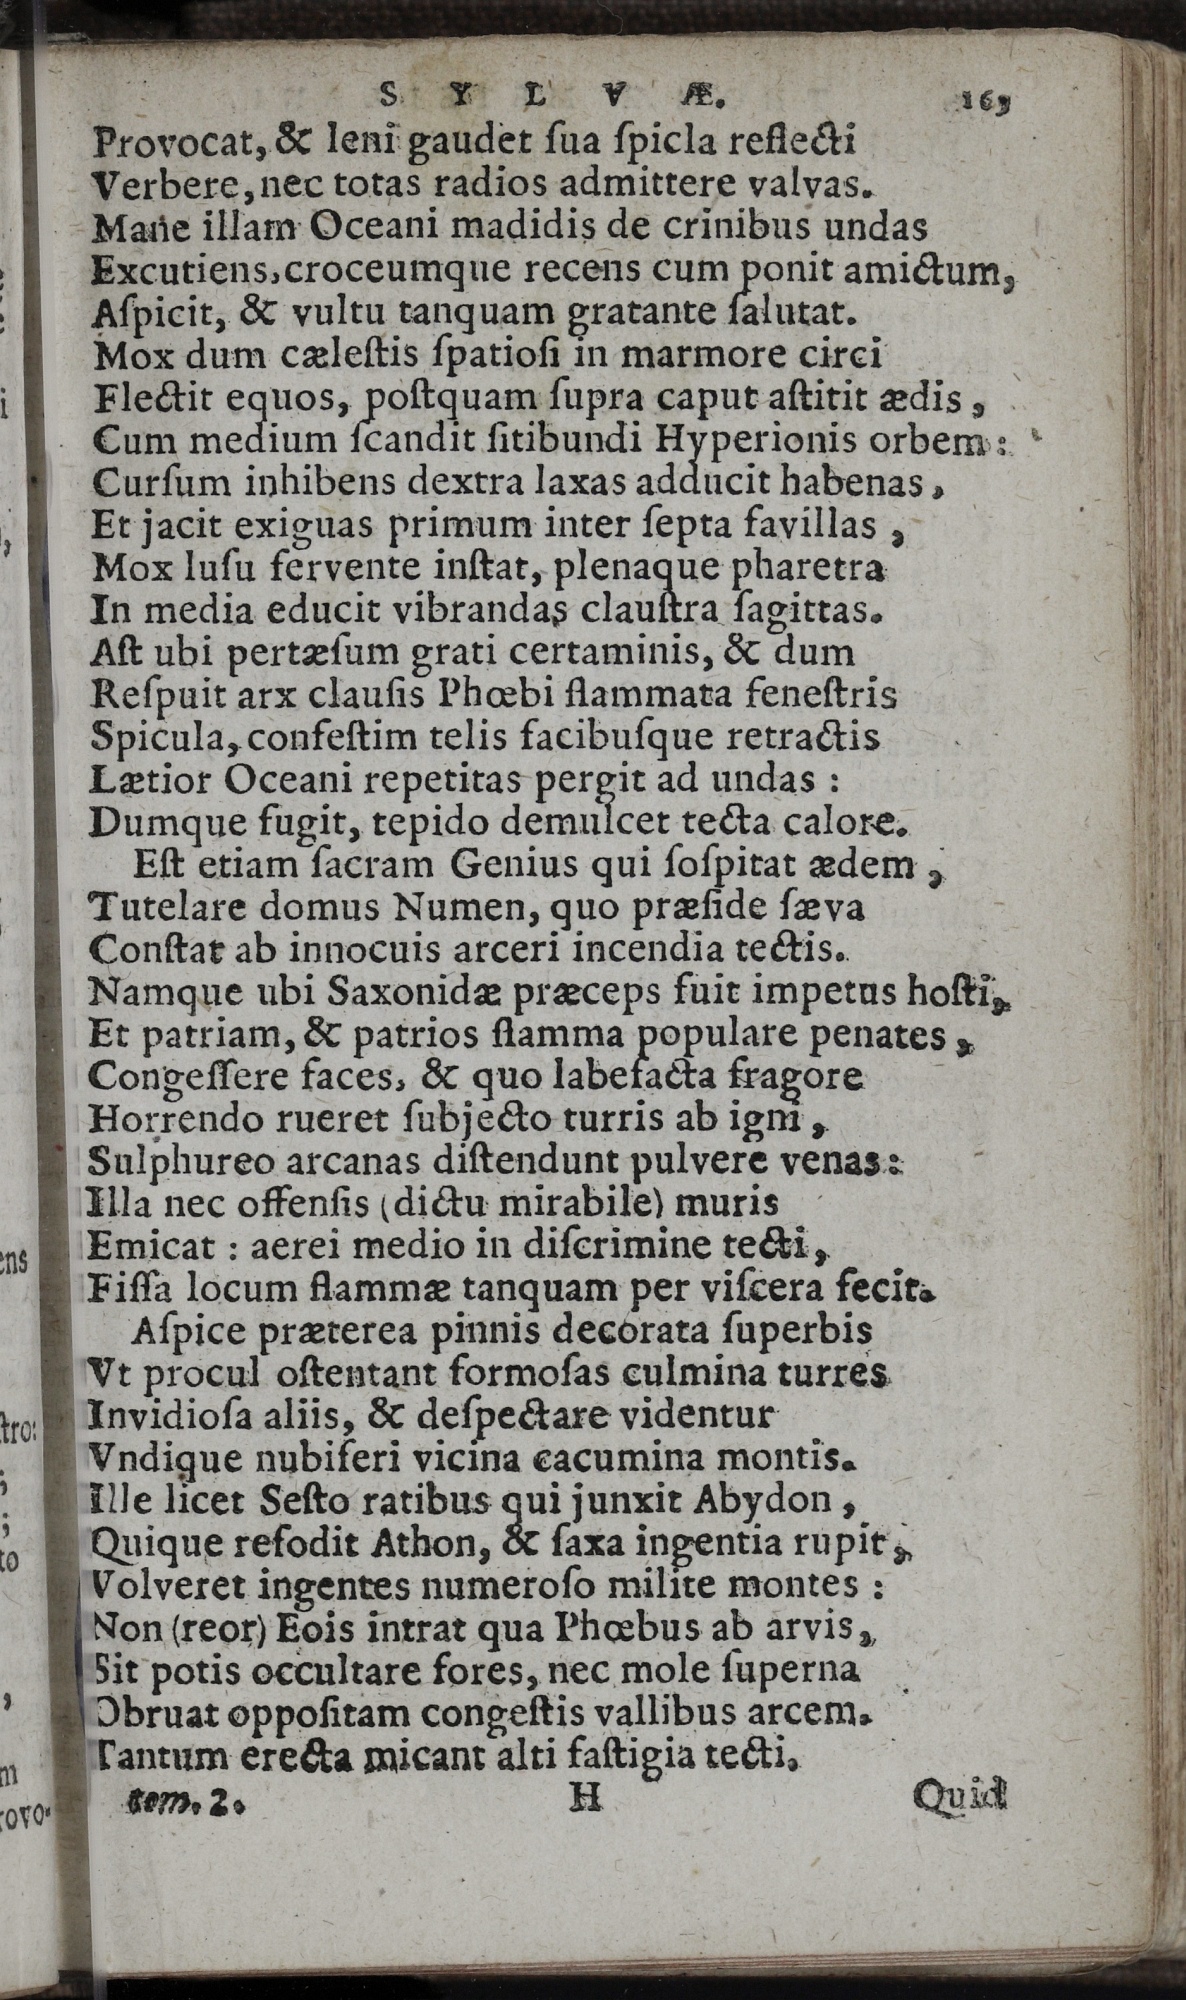 S Y L V Æ. 163
Provocat, & leni gaudet ſua ſpicla reflecti
Verbere, nec totas radios admittere valvas.
Mane illam Oceani madidis de crinibus undas
Excutiens, croceumque recens cum ponit amictum,
Aſpicit, & vultu tanquam gratante ſalutat.
Mox dum cæleſtis ſpatioſi in marmore circi
Flectit equos, poſtquam ſupra caput aſtitit ædis,
Cum medium ſcandit ſitibundi Hyperionis orbem:
Curſum inhibens dextra laxas adducit habenas,
Et jacit exiguas primum inter ſepta favillas,
Mox luſu fervente inſtat, plenaque pharetra
In media educit vibrandas clauſtra ſagittas.
Aſt ubi pertæſum grati certaminis, & dum
Reſpuit arx clauſis Phœbi flammata feneſtris
Spicula, confeſtim telis facibuſque retractis
Lætior Oceani repetitas pergit ad undas:
Dumque fugit, tepido demulcet tecta calore.
Eſt etiam ſacram Genius qui ſoſpitat ædem,
Tutelare domus Numen, quo præſide ſæva
Conſtat ab innocuis arceri incendia tectis.
Namque ubi Saxonidæ præceps fuit impetus hoſti,
Et patriam, & patrios flamma populare penates,
Congeſſere faces, & quo labefacta fragore
Horrendo rueret ſubjecto turris ab igni,
Sulphureo arcanas diſtendunt pulvere venas:
Illa nec offenſis (dictu mirabile) muris
Emicat: aerei medio in diſcrimine tecti,
Fiſſa locum flammæ tanquam per viſcera fecit.
Aſpice præterea pinnis decorata ſuperbis
Vt procul oſtentant formoſas culmina turres
Invidioſa aliis, & deſpectare videntur
Vndique nubiferi vicina cacumina montis.
Ille licet Seſto ratibus qui junxit Abydon,
Quique refodit Athon, & ſaxa ingentia rupit,
Volveret ingentes numeroſo milite montes:
Non (reor) Eois intrat qua Phœbus ab arvis,
Sit potis occultare fores, nec mole ſuperna
Obruat oppoſitam congeſtis vallibus arcem.
Tantum erecta micant alti faſtigia tecti.
tom. 2. H Quid